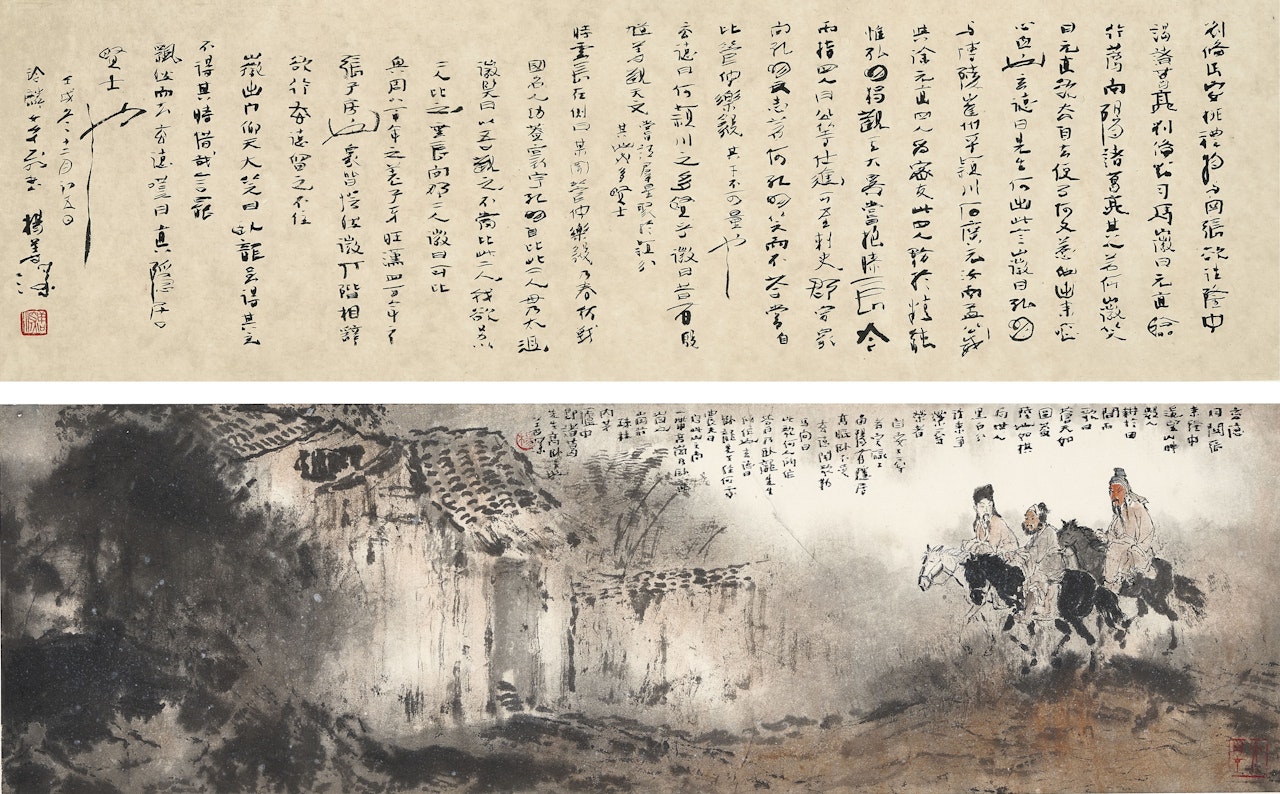 刘俻安排禮物与関張欲往隆中
謁諸葛亮刘俻知司馬徽曰元直臨
行薦南陽諸葛亮其人若何徽笑
曰元直欲去自去便了何又惹他出来嘔
心血也玄德曰先生何出此言徽曰孔明
与博陵崔州平穎川石廣元汝南孟公威
與徐元直四人為密友此四人務於精純
惟孔明獨觀其大畧嘗抱膝長吟
而指四人曰公等仕進可至刺史郡守眾
問孔明之志若何孔明笑而不答常自
比管仲樂毅其才不可量也
玄德曰何穎川之多賢乎徽曰昔有殷
馗善觀天文嘗謂群星聚於潁分其地多賢士
時雲長在側曰某聞管仲樂毅乃春秋戰
國名人功蓋寰宇孔明自比此二人毋乃太過
徽笑曰以吾觀之不當比此二人我欲另以
二人比之雲長問那二人徽曰可比
興周八百年之姜子牙旺漢四百年之
張子房也眾皆愕然徽下階相辭
欲行玄德留之不住
徽出門仰天大笑曰臥龍雖得其主
不得其時惜哉言罷
飄然而去玄德嘆曰真隱居
賢士也
楊善深
玄德
同關張
来隆中
遙望山畔
數人
耕於田
間而
歌曰
蒼天如
圓蓋
陸地如棋
局世人
黑白分
往来爭
榮辱
榮者
自安安辱
者定碌碌
南陽有隱居
高眠臥不足
玄德聞歌勒
馬問曰
此歌何人所作
答曰乃臥龍先生
所作也玄德曰
臥龍先生住何處
農夫曰
自此山之南
一帶高岡乃臥龍
岡也
岡前
疎林
內茅
廬中
即諸葛
先生高臥之地
善深